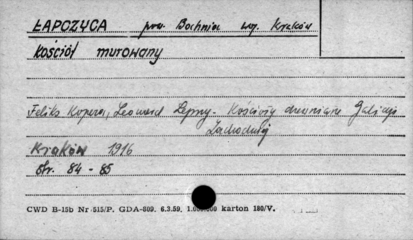 ŁAPCZYCA pow. Bochnia woj. Kraków
kościół murowany
Feliks Kopera, Leonard Lepszy - Kościoły drewniane Galicji
Zachodniej
Kraków 1916
str. 84 - 85
CWD B-15b Nr 515/P. GDA-809. 6.3.59. 1.000.000 karton 180/V.